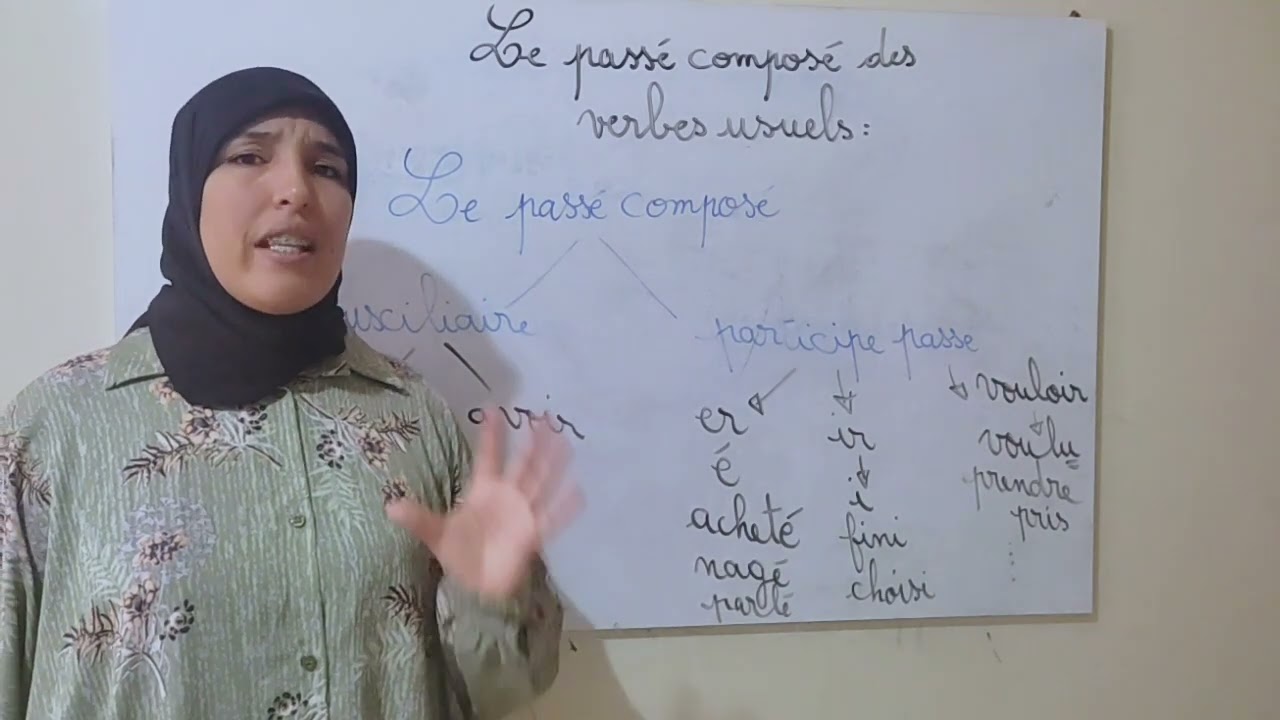 Le passé composé des
verbes usuels:
Le passé composé
usciliaire
participe passe
avoir
er
é
acheté
nagé
parlé
ir
i
fini
choisi
vouloir
voulu
prendre
pris
....